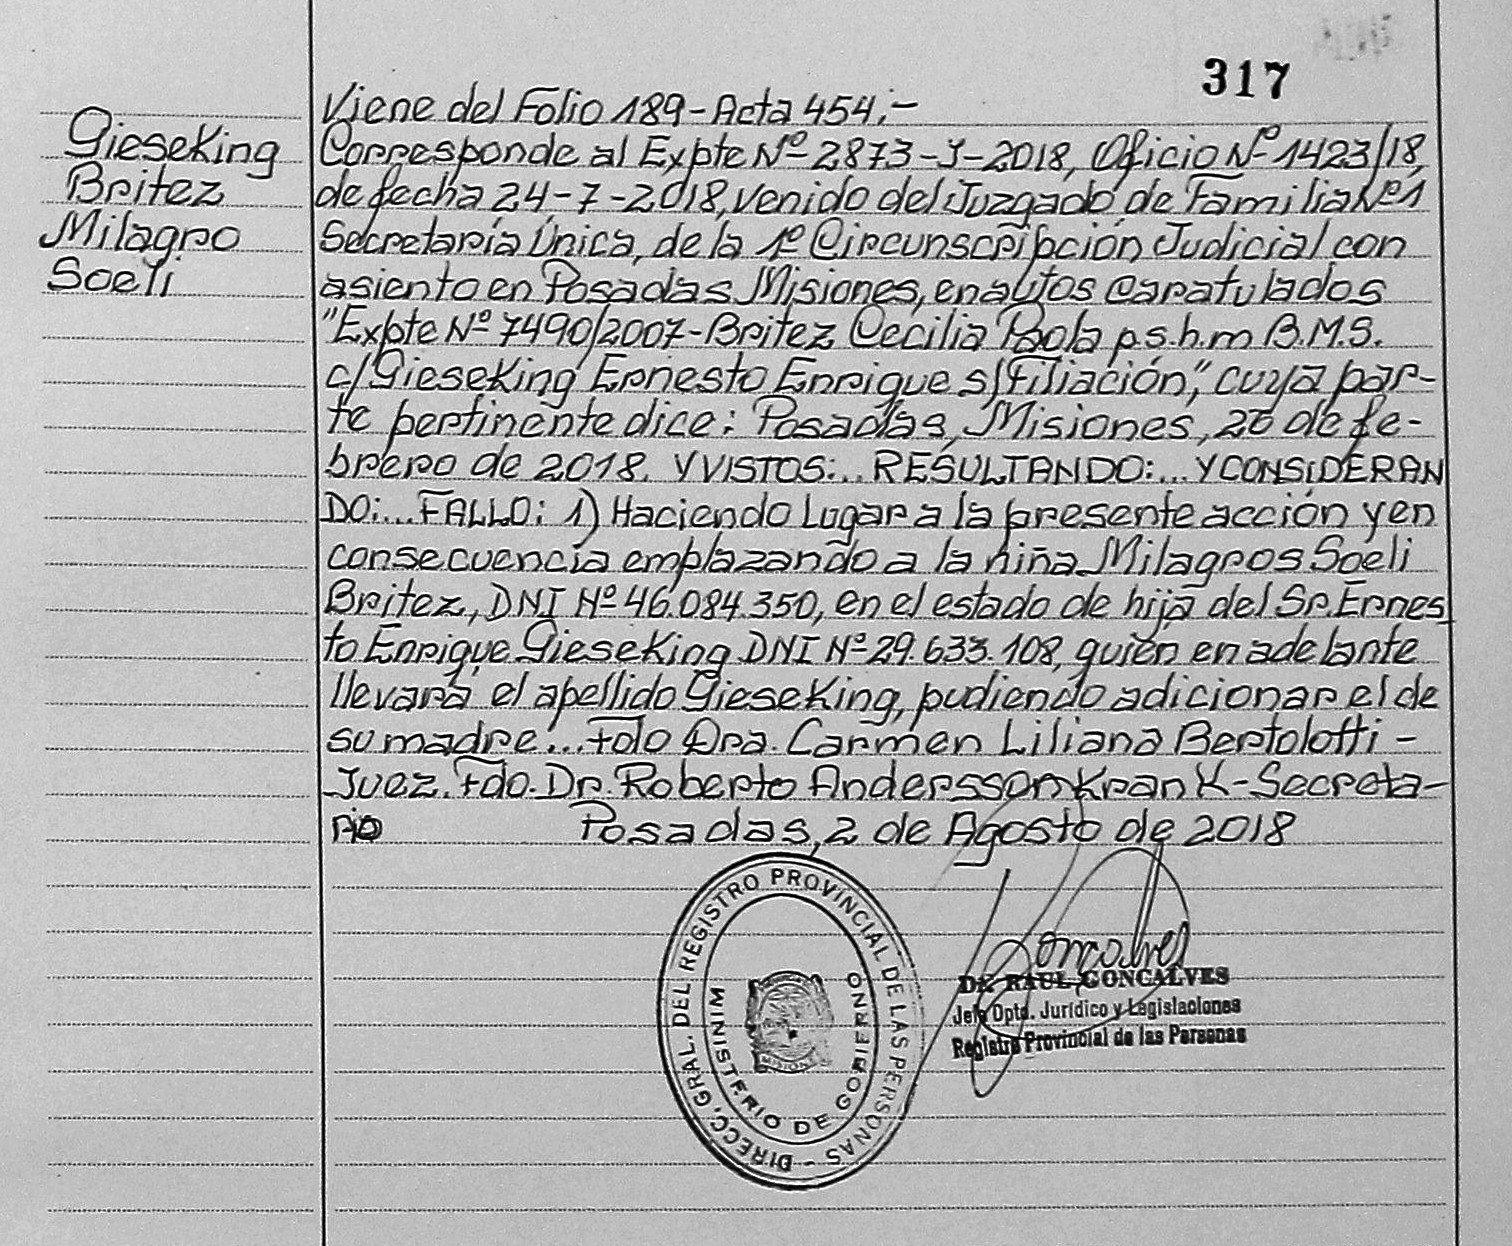 317
Gieseking
Britez
Milagro
Soeli
Viene del Folio 189 - Acta 454.-
Corresponde al Expte Nº 2873-J-2018, Oficio Nº 1423/18,
de fecha 24-7-2018, venido del Juzgado de Familia Nº1
Secretaría Única, de la 1º Circunscripción Judicial con
asiento en Posadas Misiones, en autos caratulados
"Expte Nº 7490/2007-Britez Cecilia Paola p.s.h.m B.M.S.
c/Gieseking Ernesto Enrique s/Filiación", cuya par-
te pertinente dice: Posadas, Misiones, de fe-
brero de 2018. Y VISTOS:... RESULTANDO:... Y CONSIDERAN
DO:... FALLO: 1) Haciendo Lugar a la presente acción y en
consecuencia emplazando a la niña Milagros Soeli
Britez, DNI Nº 46.084.350, en el estado de hija del Sr. Ernes
to Enrique Gieseking DNI Nº 29.633.108, quien en adelante
llevará el apellido Gieseking, pudiendo adicionar el de
su madre... Fdo Dra. Carmen Liliana Bertolotti -
Juez. Fdo. Dr. Roberto Anderssom Krank - Secreta-
rio Posadas, 2 de Agosto de 2018
DIRECC. GRAL. DEL REGISTRO PROVINCIAL DE LAS PERSONAS -
MINISTERIO DE GOBIERNO
MISIONES
Goncalves
Dr. RAUL GONCALVES
Jefe Dpto. Jurídico y Legislaciones
Registro Provincial de las Personas